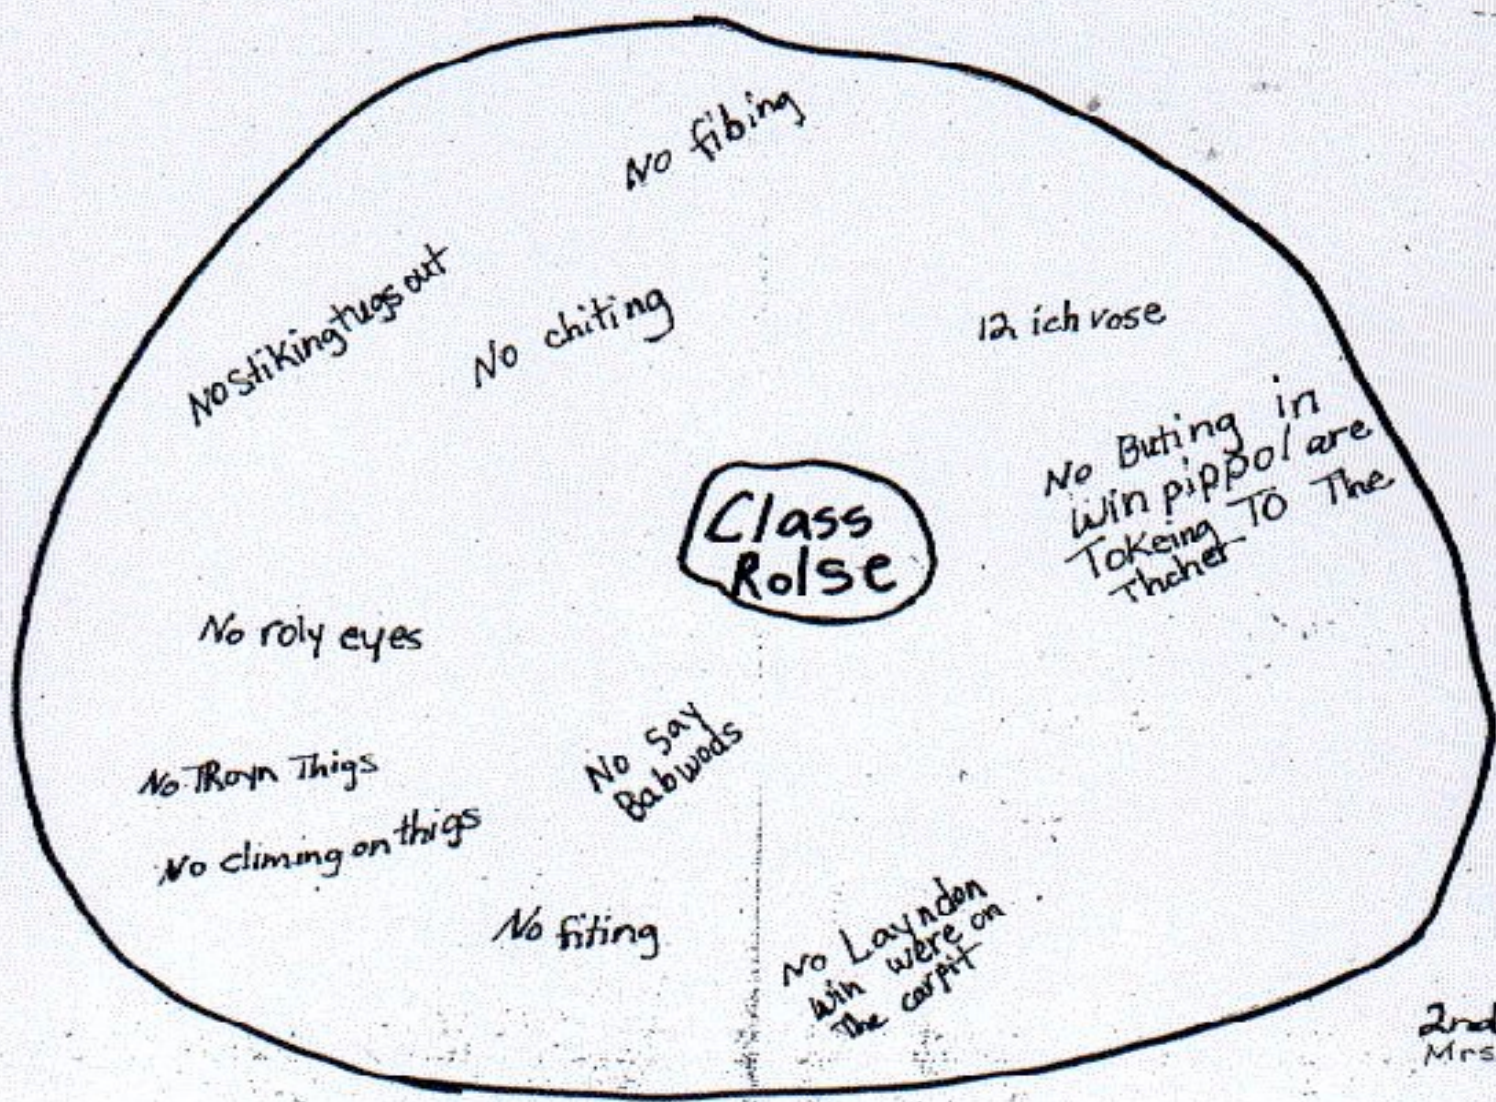 No fibing
No stiking tugs out
No chiting
12 ich vose
No Buting in
win pippol are
Tokeing TO The
Thcher
Class
Rolse
No roly eyes
No say
Babwods
No TRoyn Thigs
No climing on thigs
No fiting
No Layndon
win were on
The carpit
2nd
Mrs